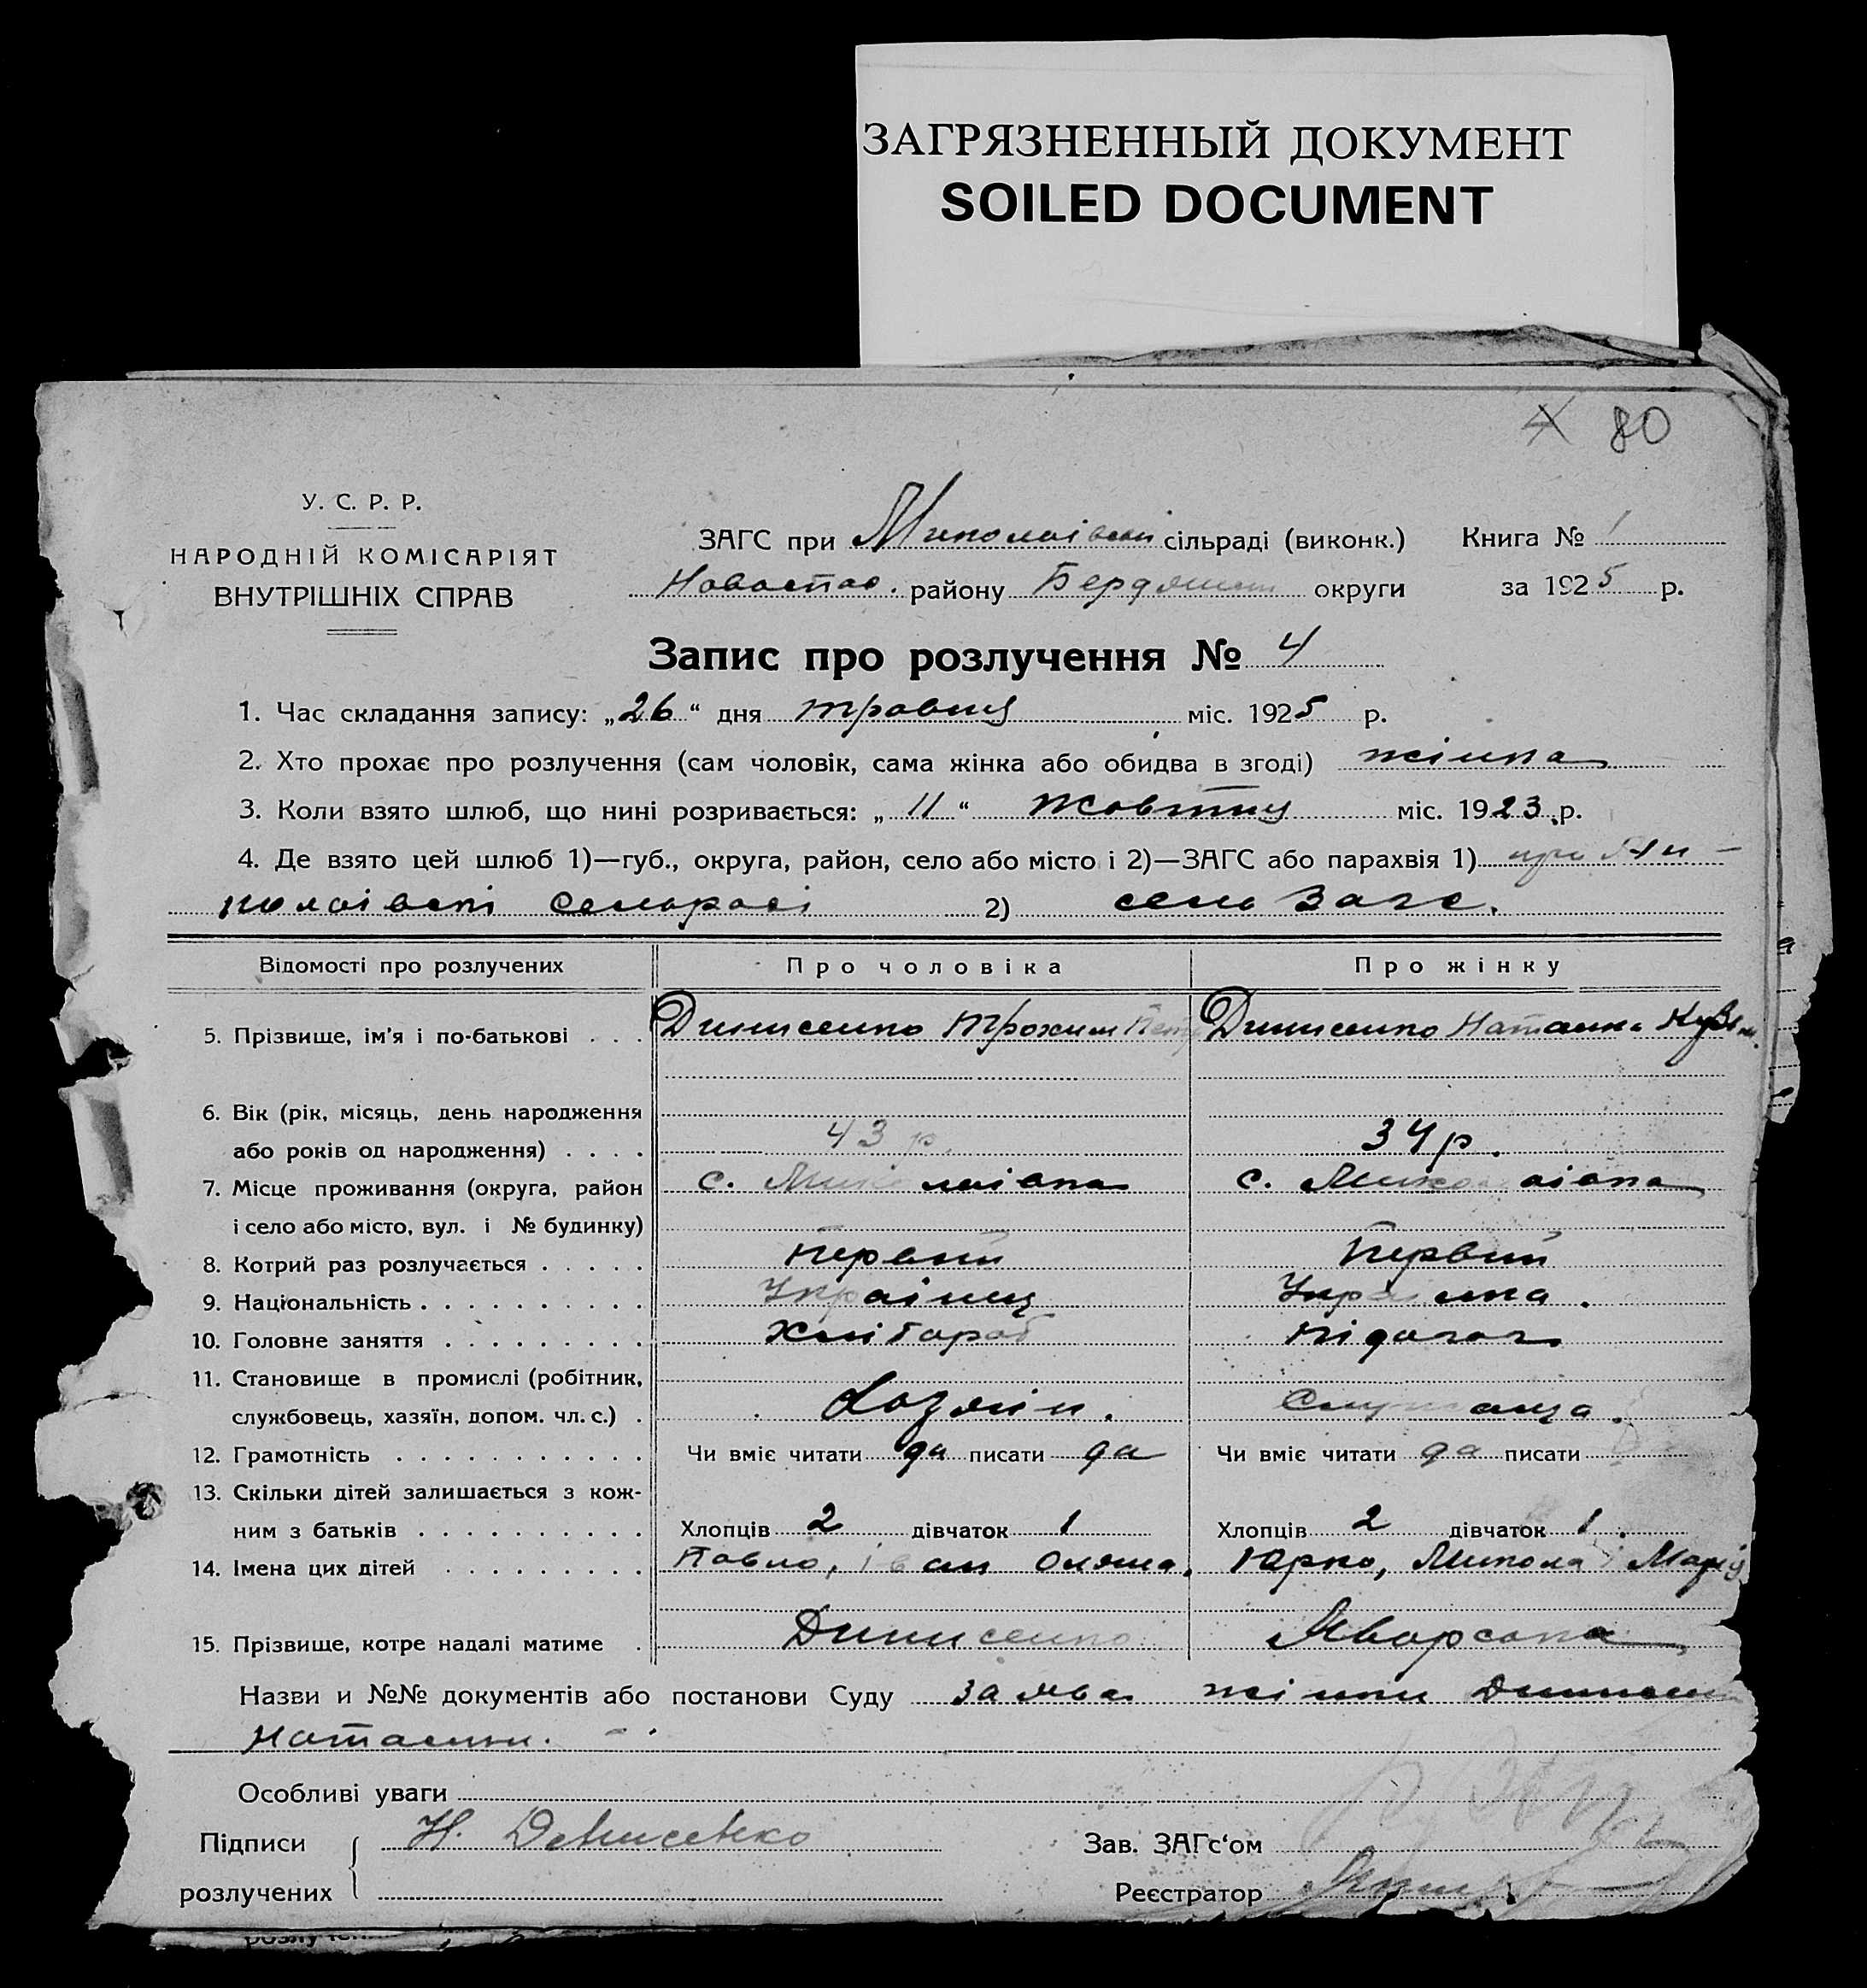 ЗАГРЯЗНЕННЫЙ ДОКУМЕНТ
SOILED DOCUMENT
4 80
У. С. Р. Р.
НАРОДНІЙ КОМІСАРІЯТ
ВНУТРІШНІХ СПРАВ
ЗАГС при Миколаівскі сільраді (виконк.) Книга № 1
Новоспас. району Бердянськ округи за 1925 р.
Запис про розлучення № 4
1. Час складання запису: „26“ дня травня міс. 1925 р.
2. Хто прохає про розлучення (сам чоловік, сама жінка або обидва в згоді) жінка
3. Коли взято шлюб, що нині розривається: „11“ Жовтня міс. 1923 р.
4. Де взято цей шлюб 1)—губ., округа, район, село або місто і 2)—ЗАГС або парахвія 1) при Ми-
колаівскі селораді 2) село Загс.
Відомості про розлучених Про чоловіка Про жінку
5. Прізвище, ім'я і по-батькові . . . Динисенко Трохим Петр Динисенко Наталка Кузьм.
6. Вік (рік, місяць, день народження
або років од народження) . . . . 43 р. 34 р.
7. Місце проживання (округа, район с. Миколаівка с. Миколаівка
і село або місто, вул. і № будинку)
8. Котрий раз розлучається . . . . . Первий Первий
9. Національність . . . . . . . . . . Украінец Украінка.
10. Головне заняття . . . . . . . . . Хлібороб Підагог
11. Становище в промислі (робітник,
службовець, хазяїн, допом. чл. с.) . Хозяін. Служаща.
12. Грамотність . . . . . . . . . . . Чи вміє читати да писати да Чи вміє читати да писати
13. Скільки дітей залишається з кож-
ним з батьків . . . . . . . . . . Хлопців 2 дівчаток 1 Хлопців 2 дівчаток 1.
14. Імена цих дітей . . . . . . . . . Павло, Іван Оляна. Юрко, Микола і Марія
15. Прізвище, котре надалі матиме . Динисенко Яворська
Назви и №№ документів або постанови Суду заява жінки Динисенко
Наталки.
Особливі уваги
Підписи Н. Денисенко Зав. ЗАГс‘ом
розлучених Реєстратор